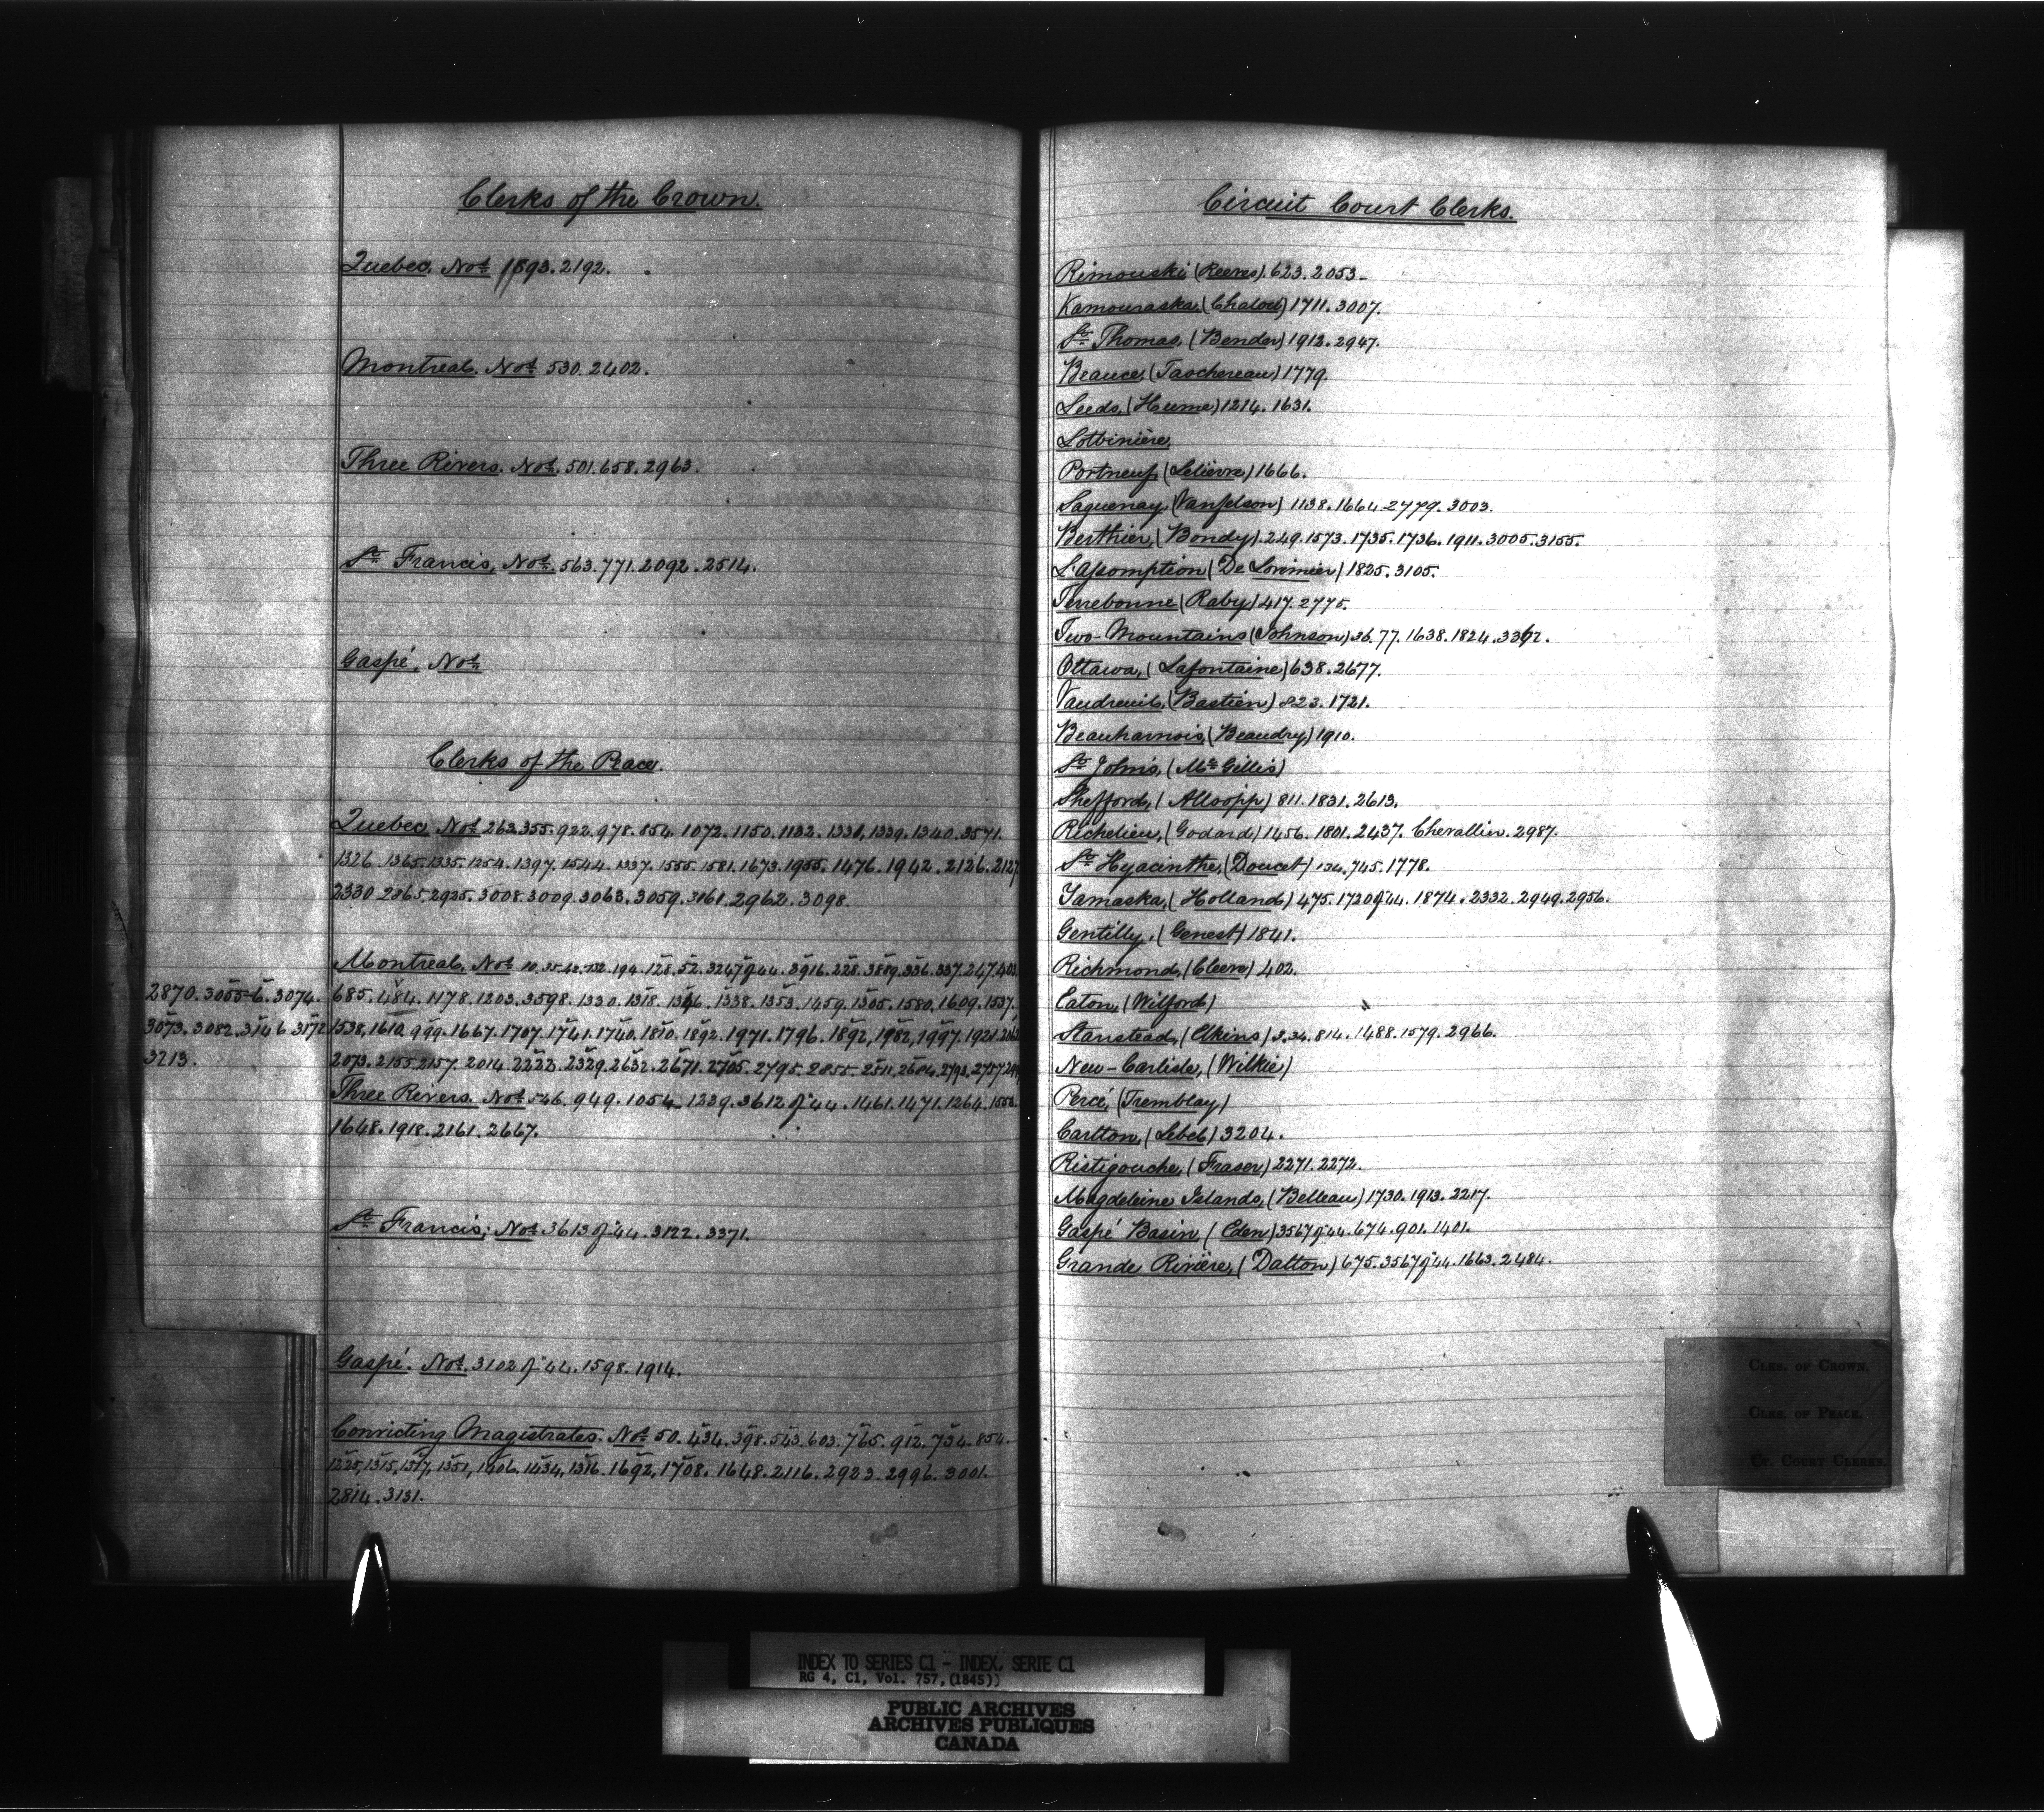 Clerks of the Crown.
Quebec. Nos 1893. 2192.
Montreal. Nos 530. 2402.
Three Rivers. Nos. 501. 658. 2963.
St Francis, Nos. 563. 771. 2092. 2514.
Gaspé, Nos
Clerks of the Peace.
Quebec, Nos 263. 355. 922. 978. 854. 1072. 1150. 1132. 1331, 1339. 1340. 3571.
1326. 1365. 1335. 1254. 1397. 1544. 1337. 1555. 1581. 1673. 1955. 1476. 1942. 2126. 2127
2330 2865. 2925. 3008. 3009. 3063. 3059. 3161. 2962. 3098.
Montreal, Nos 194. 128. 52. 3247 of 44. 3916. 228. 3889. 336. 337. 247. 403.
2870. 3055-6. 3074. 685. 484. 1178. 1203. 3598. 1330. 1318. 1346. 1338. 1353. 1459. 1305. 1580. 1609. 1537.
3073. 3082. 3146. 3172 1538, 1610. 999. 1667. 1707. 1741. 1740. 1810. 1892. 1971. 1796. 1892, 1982, 1997. 1921.
3213. 2073. 2155. 2157. 2014. 2222. 2329. 2632. 2671. 2705. 2795. 2855. 2511. 2684. 2793. 2757
Three Rivers. Nos 546. 949. 1054. 1239. 3612 of 44. 1461. 1471. 1264. 1550.
1648. 1918. 2161. 2667.
St Francis; Nos 3613 of 44. 3122. 3371.
Gaspé. Nos. 3102 of 44. 1598. 1914.
Convicting Magistrates. Nos 50. 434. 398. 543. 603. 765. 912. 734. 854.
1225, 1315, 1317, 1351, 1406. 1434, 1316. 1692, 1708. 1648. 2116. 2923. 2996. 3001.
2814. 3131.
Circuit Court Clerks.
Rimouski (Reeves). 623. 2053-
Kamouraska, (Chaloult) 1711. 3007.
St Thomas, (Bender) 1912. 2947.
Beauce, (Taschereau) 1779.
Leeds, (Hume) 1214. 1631.
Lotbinière,
Portneuf, (Lelièvre) 1666.
Saguenay, (Vanfelson) 1138. 1664. 2779. 3003.
Berthier, (Bondy). 249. 1573. 1735. 1736. 1911. 3005. 3155.
L'Assomption (De Lorimier) 1825. 3105.
Terrebonne (Raby) 417. 2775.
Two-Mountains (Johnson) 36. 77. 1638. 1824. 3362.
Ottawa, (Lafontaine) 638. 2677.
Vaudreuil, (Bastien) 823. 1721.
Beauharnois, (Beaudry) 1910.
St John's, (McGillis)
Shefford, (Allsopp) 811. 1831. 2613.
Richelieu, (Godard) 1456. 1801. 2437. Chevallier. 2987.
St Hyacinthe, (Doucet) 134. 745. 1778.
Yamaska, (Holland) 475. 1720 of 44. 1874. 2332. 2949. 2956.
Gentilly, (Genest) 1841.
Richmond, (Cleeve) 402.
Eaton, (Wilford)
Stanstead, (Elkins) 3. 34. 814. 1488. 1579. 2966.
New-Carlisle, (Wilkie)
Percé, (Tremblay)
Carlton, (Lebel) 3204.
Ristigouche, (Fraser) 2271. 2272.
Magdeleine Islands, (Belleau) 1730. 1913. 2217.
Gaspé Basin, (Eden) 3567 of 44. 674. 901. 1401.
Grande Rivière, (Dalton) 675. 3567 of 44. 1663. 2484.
CLKS. OF CROWN.
CLKS. OF PEACE.
CT. COURT CLERKS.
INDEX TO SERIES C1 - INDEX, SERIE C1
RG 4, C1, Vol. 757, (1845))
PUBLIC ARCHIVES
ARCHIVES PUBLIQUES
CANADA